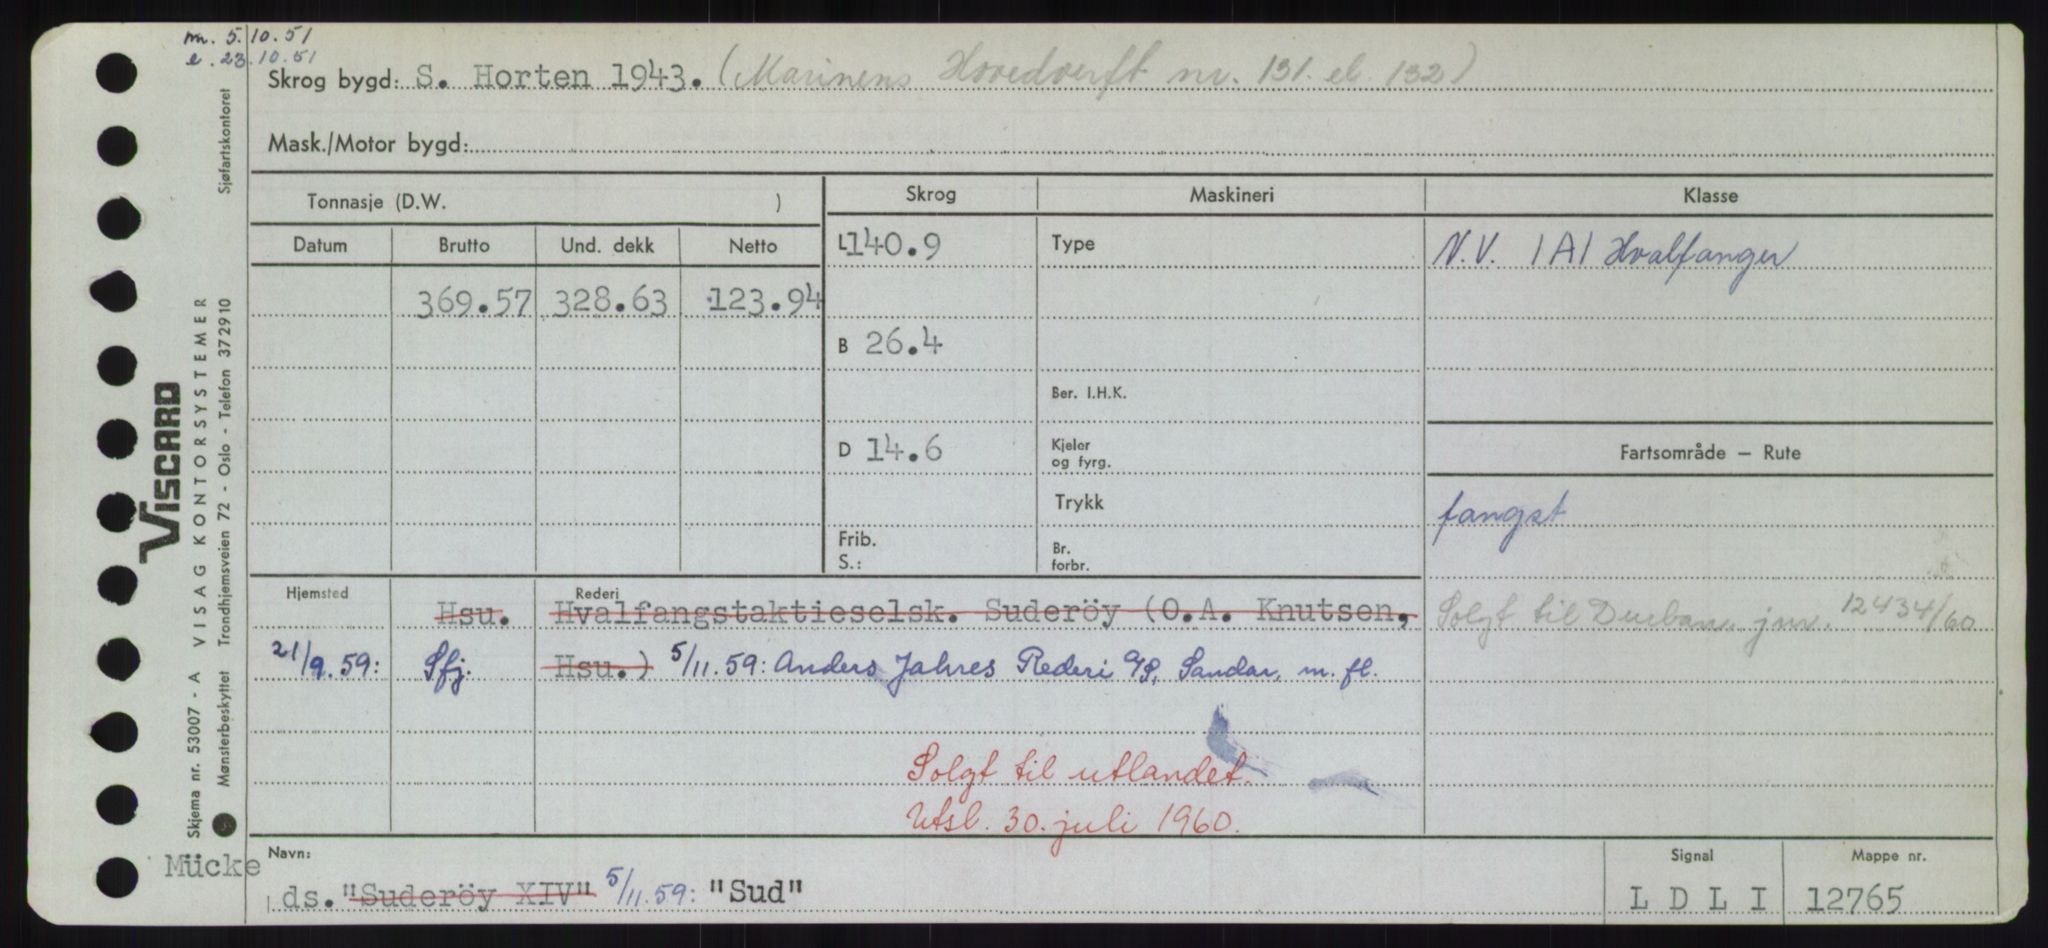 m. 5.10.51
e. 23.10.51
Skrog bygd: S. Horten 1943. (Marinens Hovedverft nr. 131. el. 132)
Mask./Motor bygd:
Tonnasje (D.W. )
Skrog
Maskineri
Klasse
Datum Brutto Und. dekk Netto
L 140.9
Type
N.V. 1A1 Hvalfanger
369.57 328.63 123.94
B 26.4
Ber. I.H.K.
D 14.6
Kjeler
og fyrg.
Fartsområde — Rute
Trykk
fangst
Frib.
S.:
Br.
forbr.
Hjemsted
Rederi
Hsu. Hvalfangstaktieselsk. Suderöy (O.A. Knutsen,
Solgt til Durban jnr. 12434/60
21/9.59: Sfj. Hsu.) 5/11.59: Anders Jahres Rederi A/S, Sandar, m. fl.
Solgt til utlandet.
Utsl. 30. juli 1960.
Navn:
Signal
Mappe nr.
Mücke
ds. "Suderöy XIV" 5/11.59: "Sud"
L D L I
12765
Sjøfartskontoret
VISCARD
Skjema nr. 53007 - A VISAG KONTORSYSTEMER
Mønsterbeskyttet Trondhjemsveien 72 - Oslo - Telefon 372910